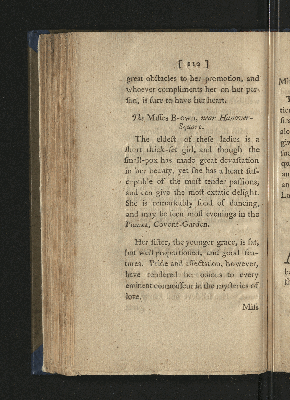 [ 119 ]
great obstacles to her promotion, and
whoever compliments her on her per-
son, is sure to have her heart.
The Misses B-own, near Hanover-
Square.
The eldest of these ladies is a
short thick-set girl, and though the
small-pox has made great devastation
in her beauty, yet she has a heart sus-
ceptible of the most tender passions,
and can give the most extatic delight.
She is remarkably fond of dancing,
and may be seen most evenings in the
Piazza, Covent-Garden.
Her sister, the younger grace, is fat,
but well proportioned, and good fea-
tures. Pride and affectation, however,
have rendered her odious to every
eminent connoisseur in the mysteries of
love.
Miss